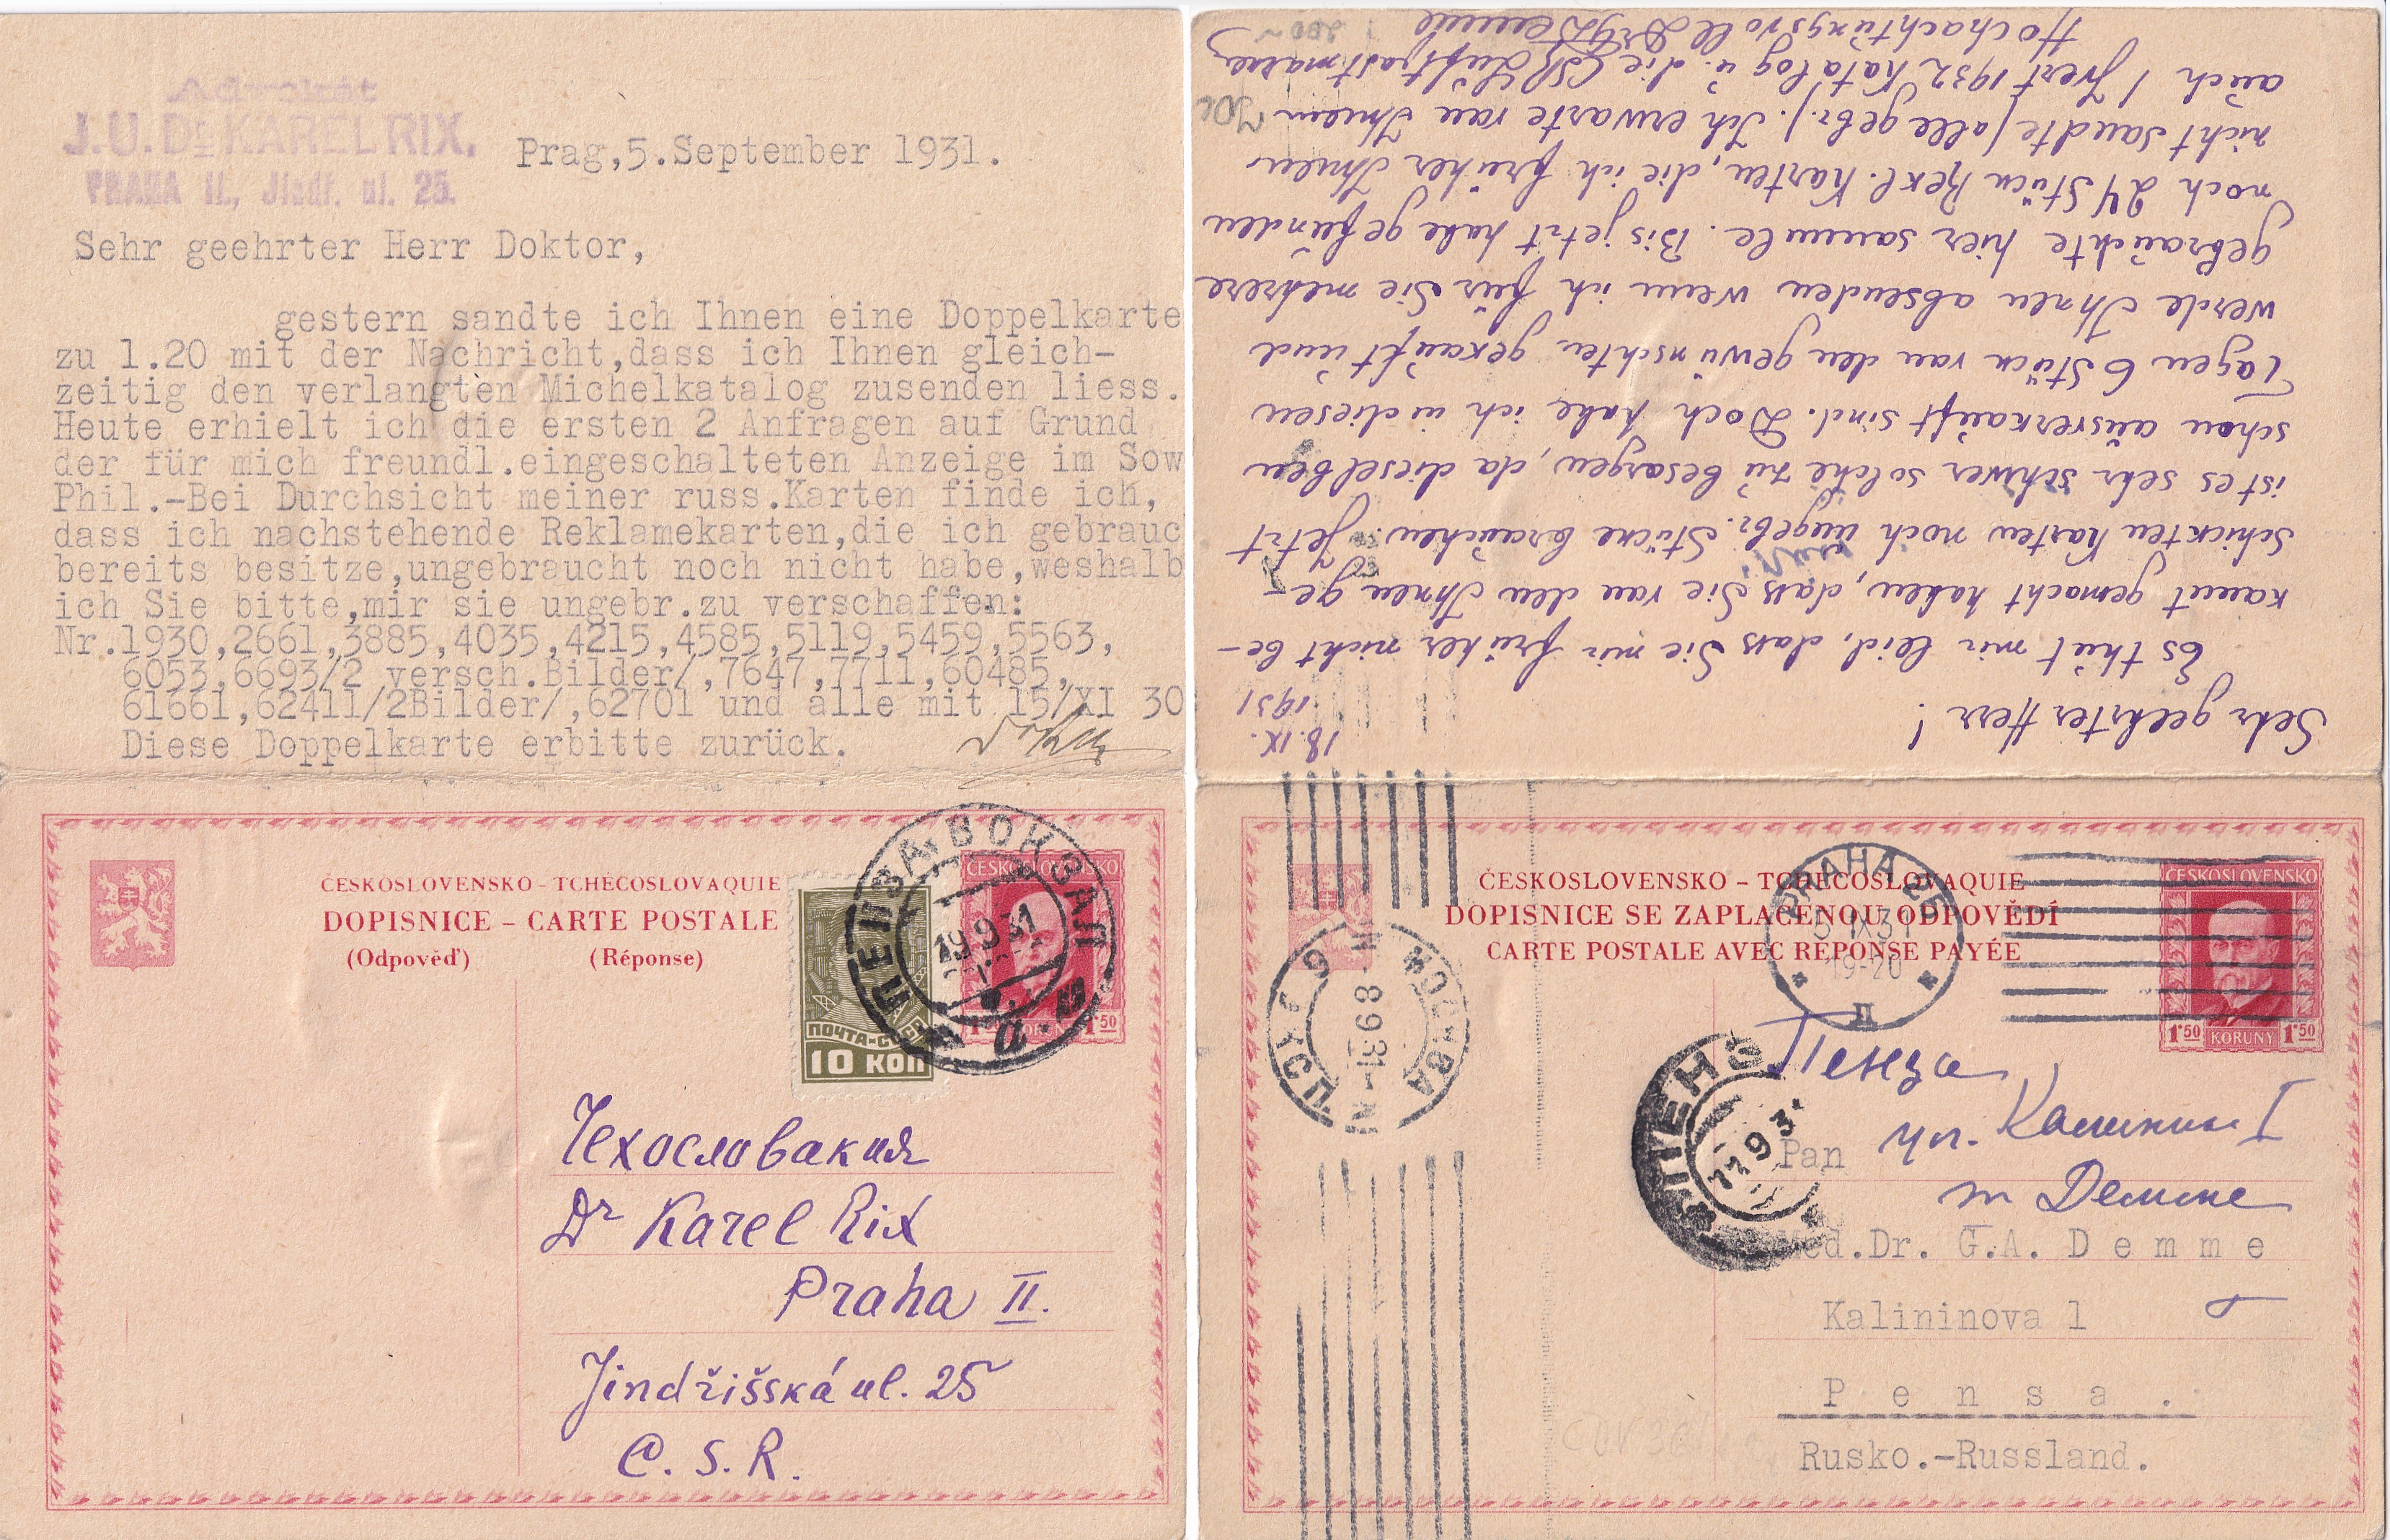 Advokát
J.U.Dr. KAREL RIX,
PRAHA II., Jindř. ul. 25.
Prag,5.September 1931.
Sehr geehrter Herr Doktor,
gestern sandte ich Ihnen eine Doppelkarte
zu 1.20 mit der Nachricht,dass ich Ihnen gleich-
zeitig den verlangten Michelkatalog zusenden liess.
Heute erhielt ich die ersten 2 Anfragen auf Grund
der für mich freundl.eingeschalteten Anzeige im Sow
Phil.-Bei Durchsicht meiner russ.Karten finde ich,
dass ich nachstehende Reklamekarten,die ich gebrauc
bereits besitze,ungebraucht noch nicht habe,weshalb
ich Sie bitte,mir sie ungebr.zu verschaffen:
Nr.1930,2661,3885,4035,4215,4585,5119,5459,5563,
6053,6693/2 versch.Bilder/,7647,7711,60485,
61661,62411/2Bilder/,62701 und alle mit 15/XI 30
Diese Doppelkarte erbitte zurück.
ČESKOSLOVENSKO - TCHÉCOSLOVAQUIE
DOPISNICE - CARTE POSTALE
(Odpověď) (Réponse)
ČESKOSLOVENSKO
1.50
ПОЧТА-СССР
10 КОП
ПЕНЗА ВОКЗАЛ
19 9 31
Чехословакия
Dr Karel Rix
Praha II.
Jindřišská ul. 25
C. S. R.
18. IX.
1931
Sehr geehrter Herr!
Es thut mir leid, dass Sie mir früher nicht be-
kannt gemacht haben, dass Sie von den Ihnen ge-
schickten Karten noch ungebr. Stücke brauchen. Jetzt
ist es sehr schwer solche zu besorgen, da dieselben
schon ausverkauft sind. Doch habe ich in diesen
Tagen 6 Stück von den gewünschten gekauft und
werde Ihnen absenden wenn ich für Sie mehrere
gebrauchte hier sammle. Bis jetzt habe gefunden
noch 24 Stück Rekl. Karten, die ich früher Ihnen
nicht sandte (alle gebr.). Ich erwarte von Ihnen
auch 1 Yvert 1932 Katalog u. die CSR Luftpostmarken
Hochachtungsvoll Dr G Demme
ČESKOSLOVENSKO - TCHÉCOSLOVAQUIE
DOPISNICE SE ZAPLACENOU ODPOVĚDÍ
CARTE POSTALE AVEC RÉPONSE PAYÉE
ČESKOSLOVENSKO
1.50 KORUNY 1.50
PRAHA 25
5 IX 31
19-20
II
МОСКВА
8 9 31
ПЕНЗ
11 9 31
Пенза
ул. Калинина I
Демме
Pan
Med.Dr. G.A. D e m m e
Kalininova 1
P e n s a .
Rusko.-Russland.